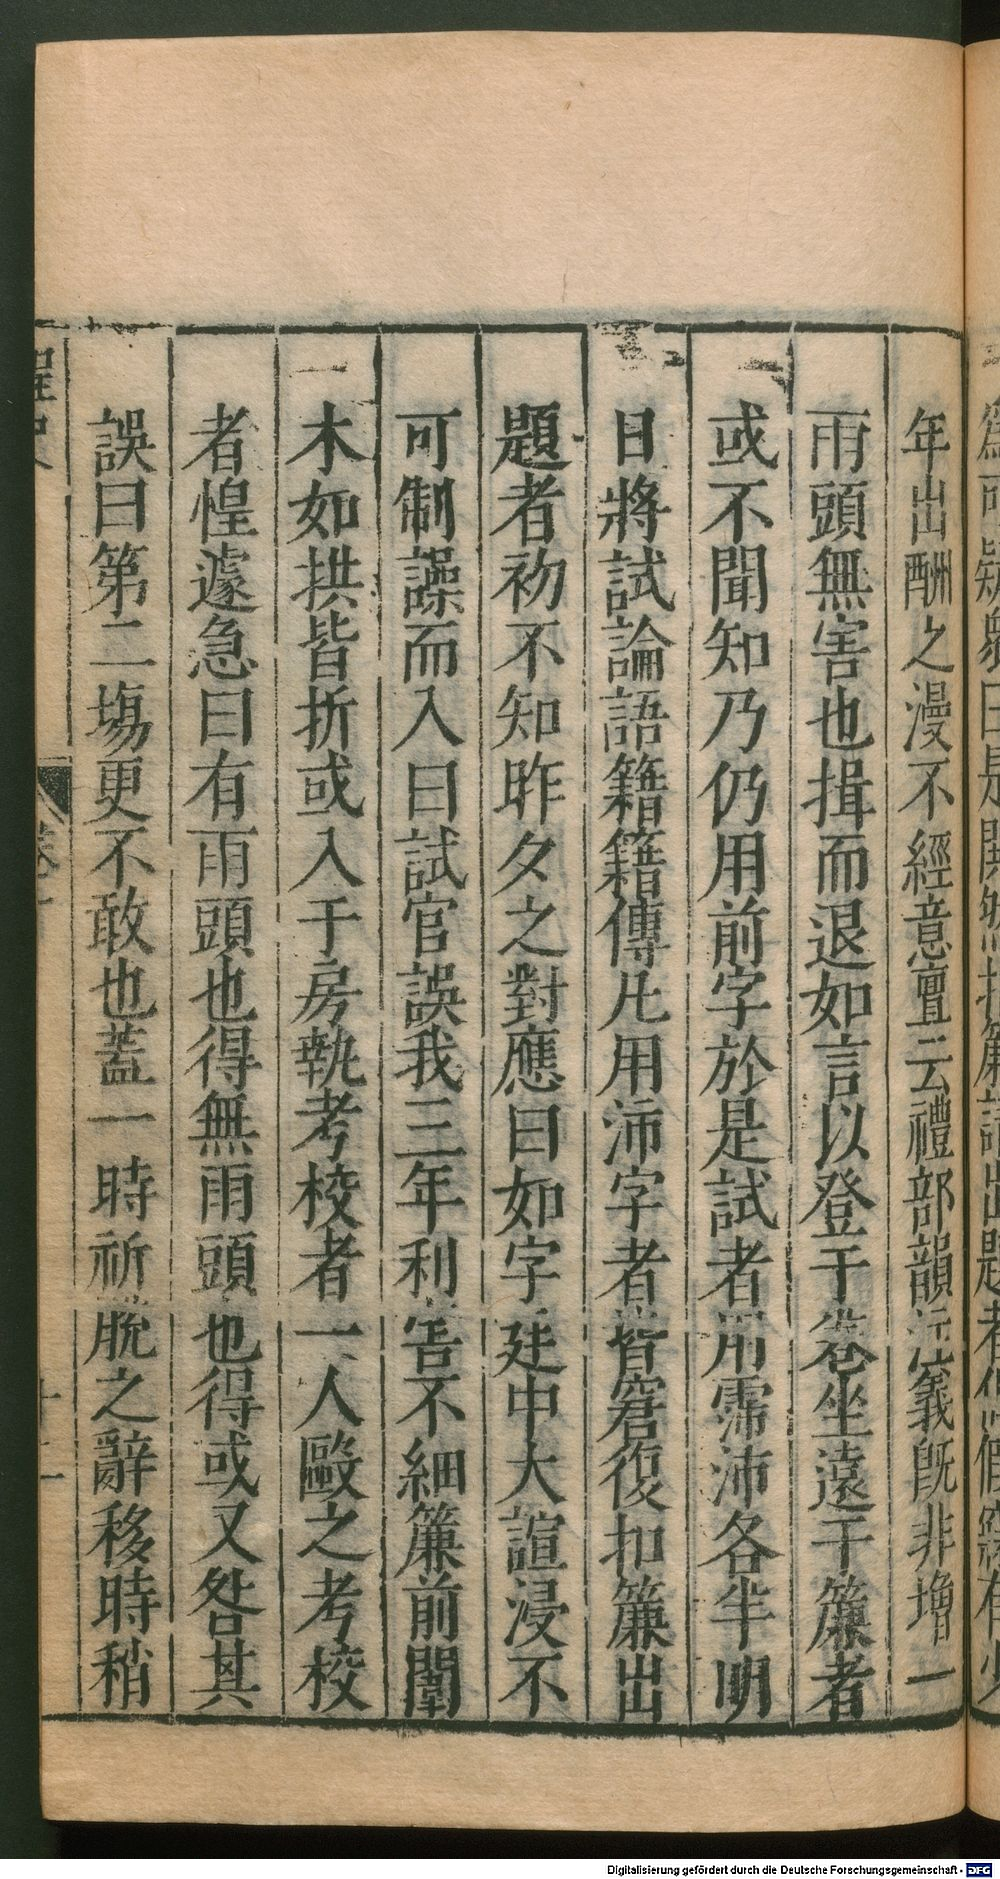 年出酬之漫不經意亶云禮部韻注義旣非增一
雨頭無害也揖而退如言以登于卷坐遠于簾者
或不聞知乃仍用前字於是試者用霈沛各半明
日將試論語籍籍傳凡用沛字者皆窘復扣簾出
題者初不知昨夕之對應曰如字廷中大諠浸不
可制譟而入曰試官誤我三年利害不細簾前闈
木如拱皆折或入于房執考校者一人毆之考校
者惶遽急曰有雨頭也得無雨頭也得或又咎其
誤曰第二塲更不敢也蓋一時祈脫之辭移時稍
桯史
卷十
十二
Digitalisierung gefördert durch die Deutsche Forschungsgemeinschaft - DFG